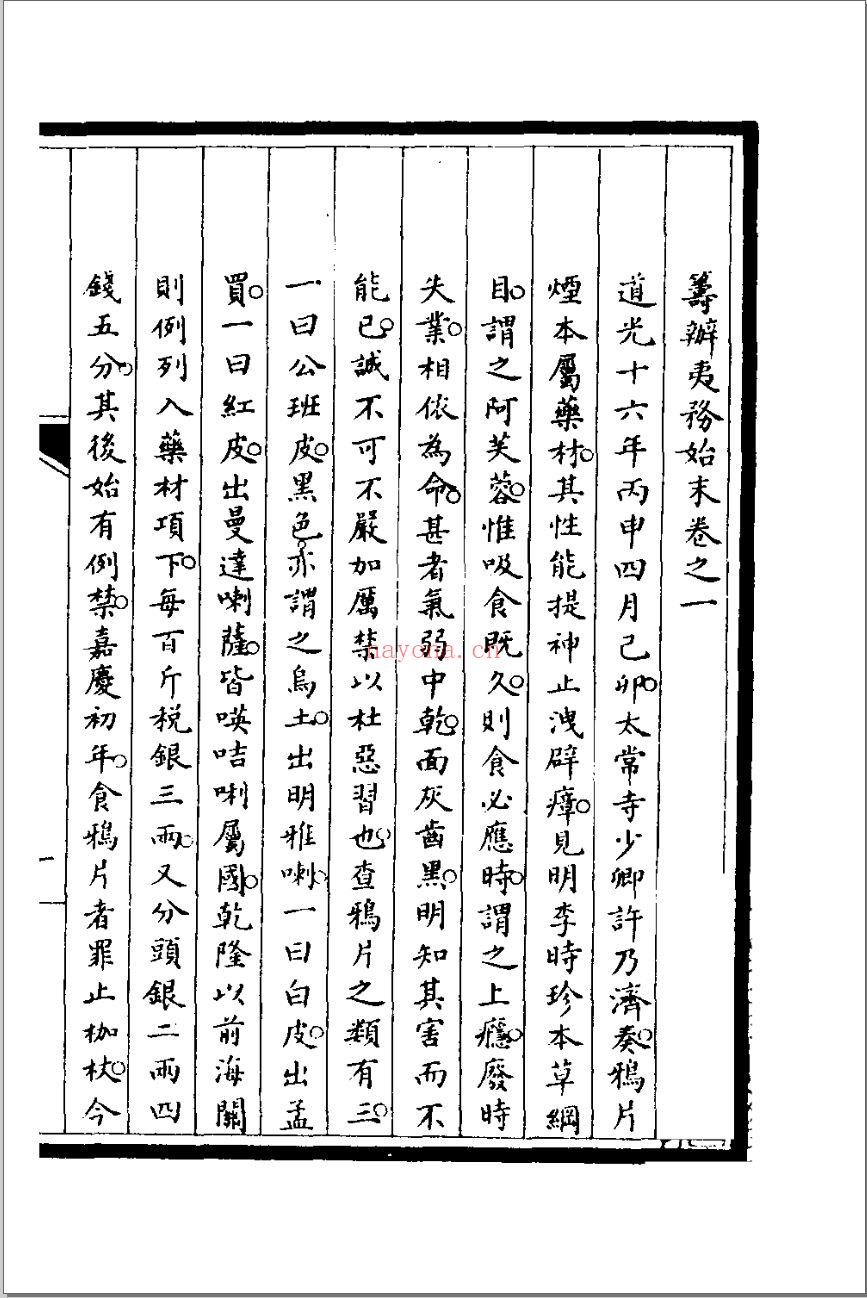 籌辦夷務始末卷之一
道光十六年丙申四月己卯。太常寺少卿許乃濟奏。鴉片
煙本屬藥材。其性能提神止洩辟瘴。見明李時珍本草綱
目。謂之阿芙蓉。惟吸食既久。則食必應時。謂之上癮。廢時
失業。相依為命。甚者氣弱中乾。面灰齒黑。明知其害而不
能已。誠不可不嚴加厲禁以杜惡習也。查鴉片之類有三。
一曰公班皮。黑色。亦謂之烏土。出明雅喇。一曰白皮。出孟
買。一曰紅皮。出曼達喇薩。皆㗆咭唎屬國。乾隆以前海關
則例列入藥材項下。每百斤稅銀三兩。又分頭銀二兩四
錢五分。其後始有例禁。嘉慶初年。食鴉片者罪止枷杖。今
naycha.cn